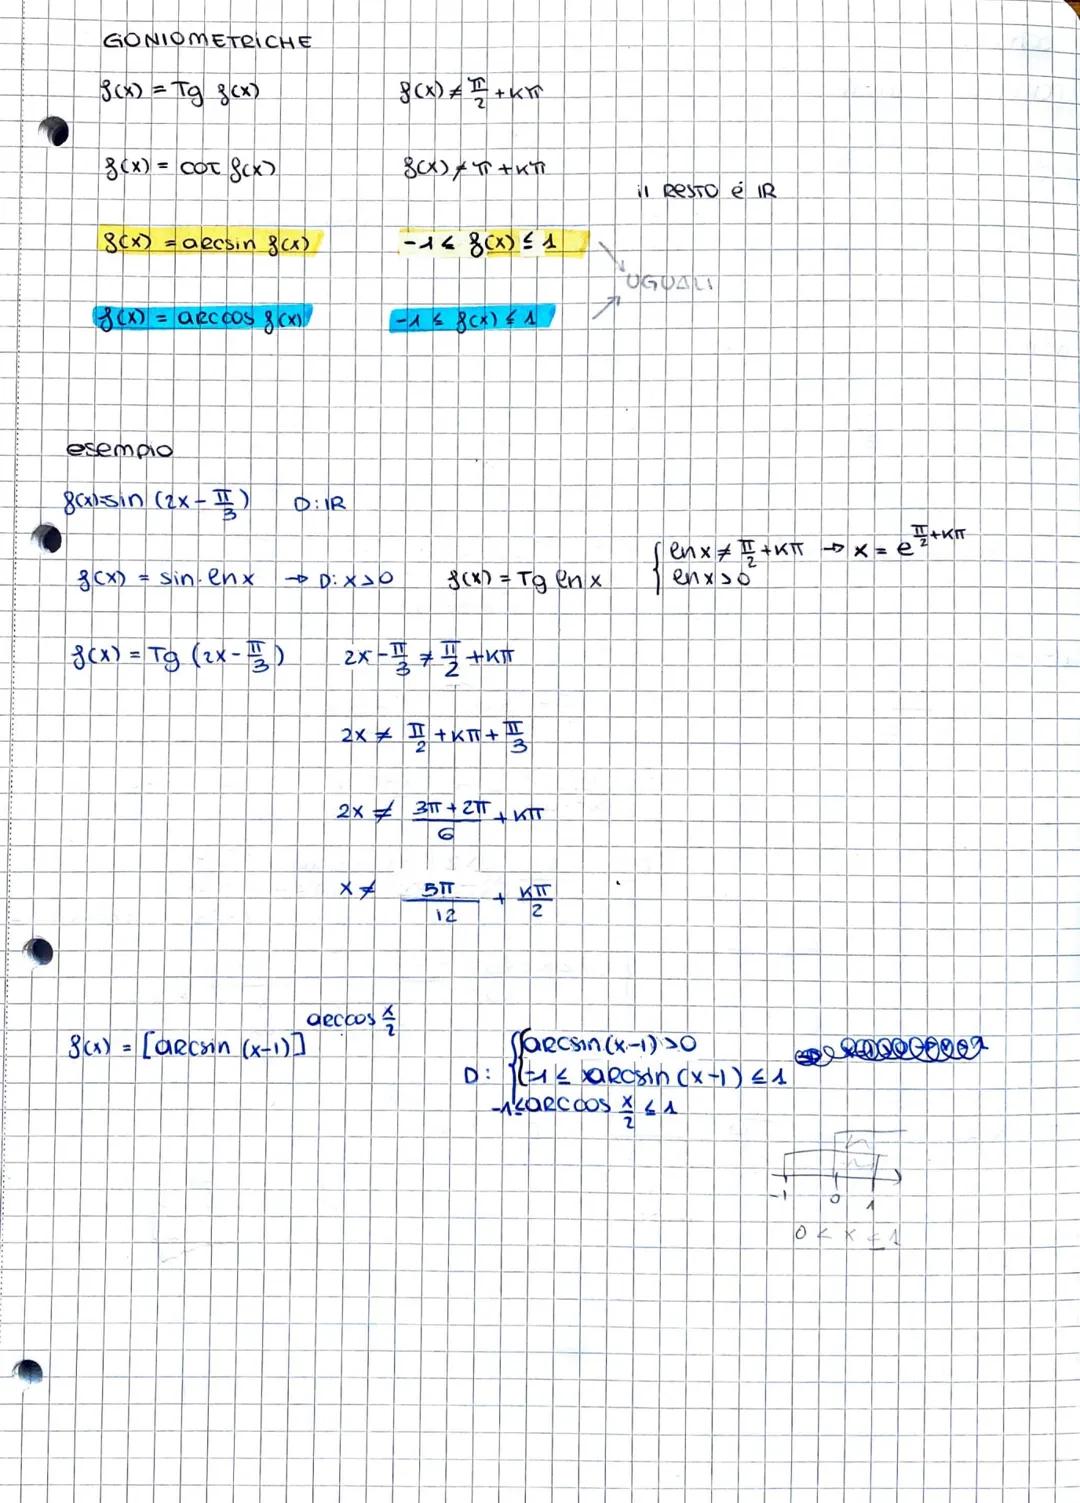 GONIOMETRICHE
f(x) = Tg f(x) f(x) ≠ π/2 + kπ
f(x) = cot f(x) f(x) ≠ π + kπ
il RESTO é IR
f(x) = arcsin f(x) -1 ≤ f(x) ≤ 1
UGUALI
f(x) = arccos f(x) -1 ≤ f(x) ≤ 1
esempio
f(x)=sin (2x - π/3) D: IR
f(x) = sin lnx → D: x>0 f(x) = Tg ln x { lnx ≠ π/2 + kπ → x = e^(π/2 + kπ)
lnx>0
f(x) = Tg (2x - π/3) 2x - π/3 ≠ π/2 + kπ
2x ≠ π/2 + kπ + π/3
2x ≠ (3π + 2π)/6 + kπ
x ≠ 5π/12 + kπ/2
f(x) = [arcsin (x-1)]^(arccos x/2)
D: { arcsin (x-1) >0
-1 ≤ arcsin (x-1) ≤ 1
-1 ≤ arccos x/2 ≤ 1
-1 0 1
0 < x ≤ 1